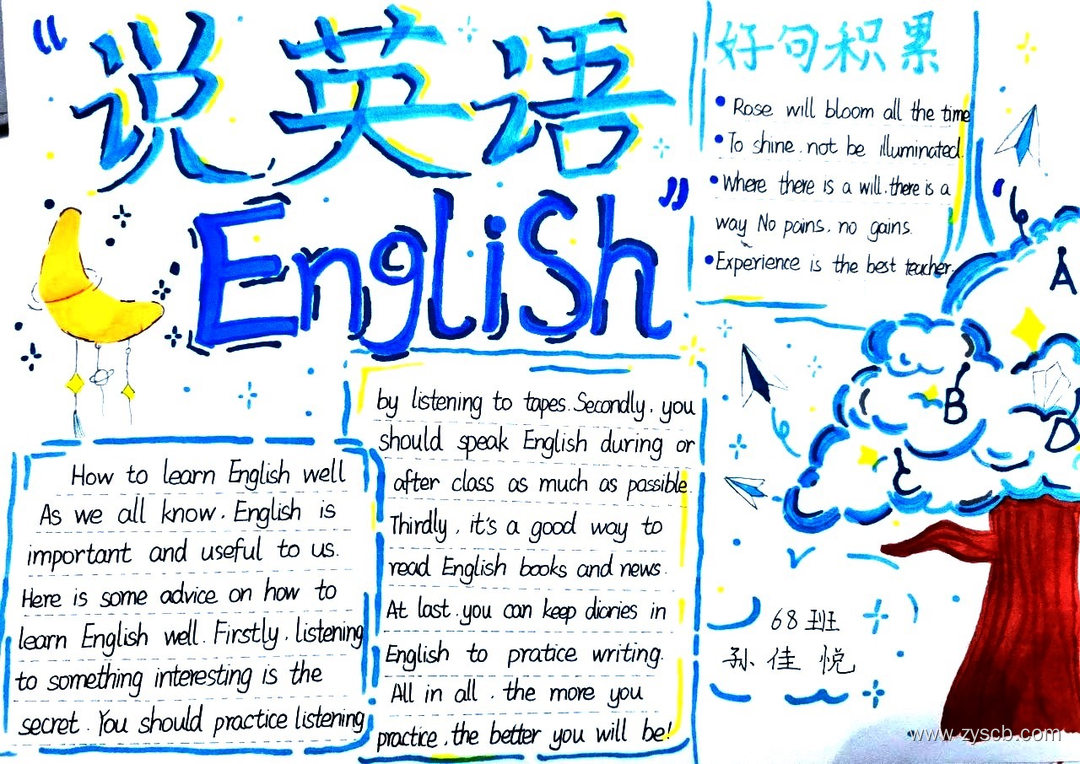 “说英语
English”
好句积累
Rose will bloom all the time
To shine, not be illuminated.
Where there is a will, there is a
way No pains, no gains.
Experience is the best teacher.
How to learn English well
As we all know, English is
important and useful to us.
Here is some advice on how to
learn English well. Firstly, listening
to something interesting is the
secret. You should practice listening
by listening to tapes. Secondly, you
should speak English during or
after class as much as possible.
Thirdly, it's a good way to
read English books and news.
At last, you can keep diaries in
English to pratice writing.
All in all, the more you
practice, the better you will be!
A
B
C
D
68班
孙佳悦
www.zyscb.com